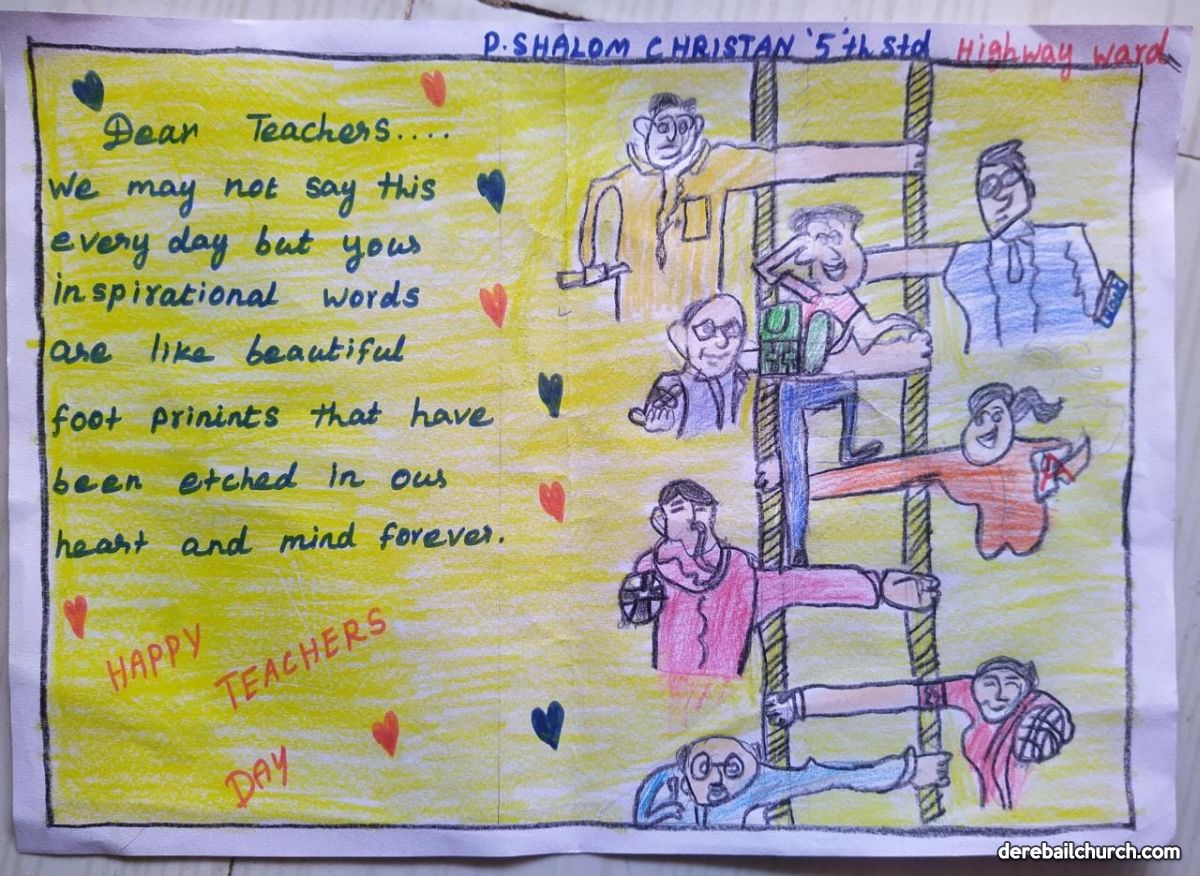 P. SHALOM CHRISTAN '5'th Std Highway ward
Dear Teachers....
We may not say this
every day but your
inspirational words
are like beautiful
foot prinints that have
been etched in our
heart and mind forever.
HAPPY
TEACHERS
DAY
derebailchurch.com